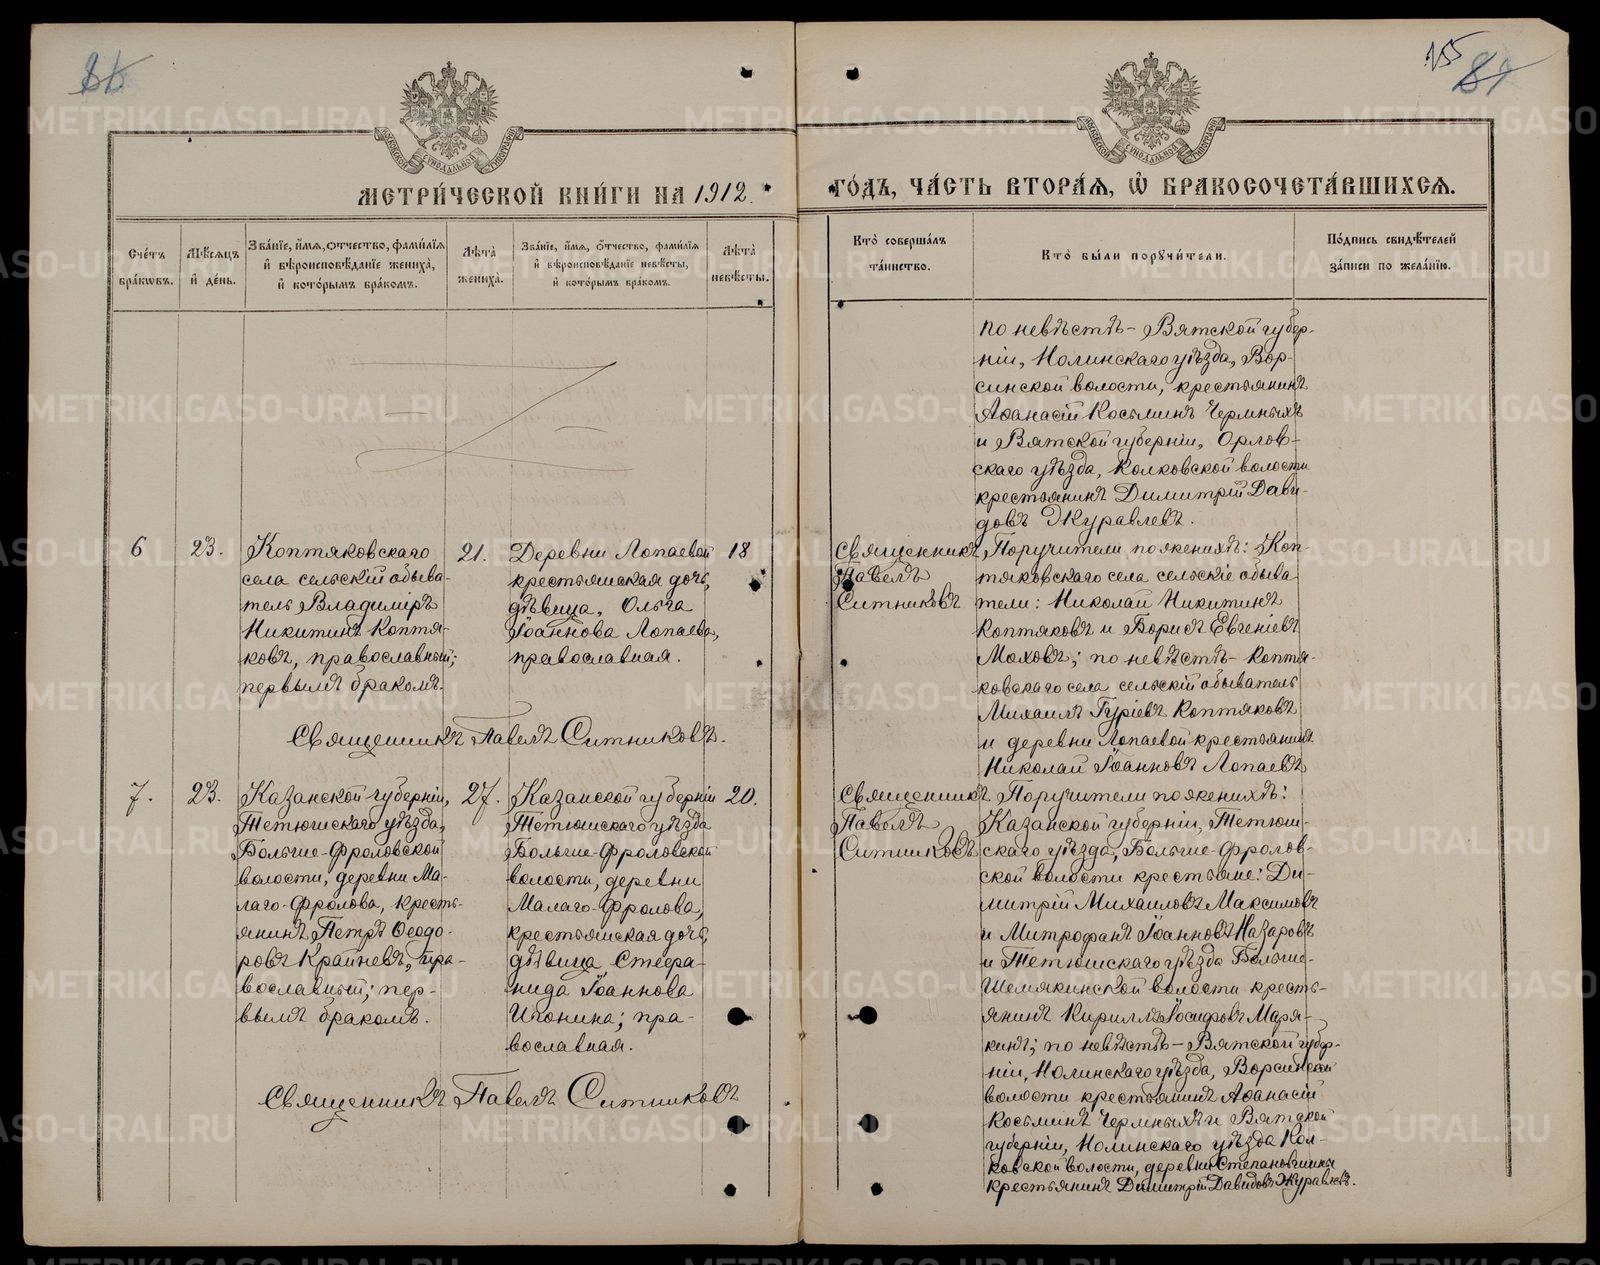 155 87
МОСКОВСКОЙ СѴНОДАЛЬНОЙ ТИПОГРАФІИ
МОСКОВСКОЙ СѴНОДАЛЬНОЙ ТИПОГРАФІИ
МЕТРИ́ЧЕСКОЙ КНИ́ГИ НА 1912.
ГО́ДЪ, ЧА́СТЬ ВТОРА́Ѧ, Ѡ҆ БРАКОСОЧЕТА́ВШИХСѦ.
Сче́тъ бра́кѡвъ.
Мѣ́сѧцъ и҆ де́нь.
Зва́нїе, и҆́мѧ, ѻ҆́тчество, фами́лїѧ и҆ вѣроисповѣ́данїе жениха̀, и҆ кото́рымъ бра́комъ.
Лѣ́та̀ жениха̀.
Зва́нїе, и҆́мѧ, ѻ҆́тчество, фами́лїѧ и҆ вѣроисповѣ́данїе невѣ́сты, и҆ кото́рымъ бра́комъ.
Лѣ́та̀ невѣ́сты.
Кто̀ соверша́лъ та́инство.
Кто̀ бы́ли порꙋчи́тели.
По́дпись свидѣ́телей за́писи по жела́нїю.
по невѣстѣ – Вятской губер-
ніи, Нолинскаго уѣзда, Вор-
синской волости, крестьянинъ
Аѳанасій Косьминъ Чермныхъ
и Вятской губерніи, Орлов-
скаго уѣзда, Колковской волости
крестьянинъ Димитрій Дави-
довъ Журавлевъ.
6
23.
Коптяковскаго
села сельскій обыва-
тель Владиміръ
Никитинъ Коптя-
ковъ, православный;
первымъ бракомъ.
21.
Деревни Лопаевой
крестьянская дочь,
дѣвица, Ольга
Іоаннова Лопаева,
православная.
18
Священникъ
Павелъ
Ситниковъ
Поручители по женихѣ: Коп-
тяковскаго села сельскіе обыва-
тели: Николай Никитинъ
Коптяковъ и Борисъ Евгеніевъ
Моховъ; по невѣстѣ – Коптя-
ковскаго села сельскій обыватель
Михаилъ Гуріевъ Коптяковъ
и деревни Лопаевой крестьянинъ
Николай Іоанновъ Лопаевъ
Священникъ Павелъ Ситниковъ.
7.
23.
Казанской губерніи,
Тетюшскаго уѣзда,
Больше-Фроловской
волости, деревни Ма-
лаго-Фролова, кресть-
янинъ Петръ Ѳеодо-
ровъ Крайневъ, пра-
вославный; пер-
вымъ бракомъ.
27.
Казанской губерніи
Тетюшскаго уѣзда
Больше-Фроловской
волости, деревни
Малаго-Фролова,
крестьянская дочь,
дѣвица Стефа-
нида Іоаннова
Ионина; пра-
вославная.
20.
Священникъ
Павелъ
Ситниковъ
Поручители по женихѣ:
Казанской губерніи, Тетюш-
скаго уѣзда, Больше-Фролов-
ской волости крестьяне: Ди-
митрій Михаиловъ Максимовъ
и Митрофанъ Іоанновъ Назаровъ
и Тетюшскаго уѣзда Больше-
Шемякинской волости кресть-
янинъ Кириллъ Іосифовъ Маря-
кинъ; по невѣстѣ – Вятской губер-
ніи, Нолинскаго уѣзда, Ворсинской
волости крестьянинъ Аѳанасій
Косьминъ Чермныхъ и Вятской
губерніи, Нолинскаго уѣзда Кол-
ковской волости, деревни Степановщины
крестьянинъ Димитрій Давидовъ Журавлевъ.
Священникъ Павелъ Ситниковъ